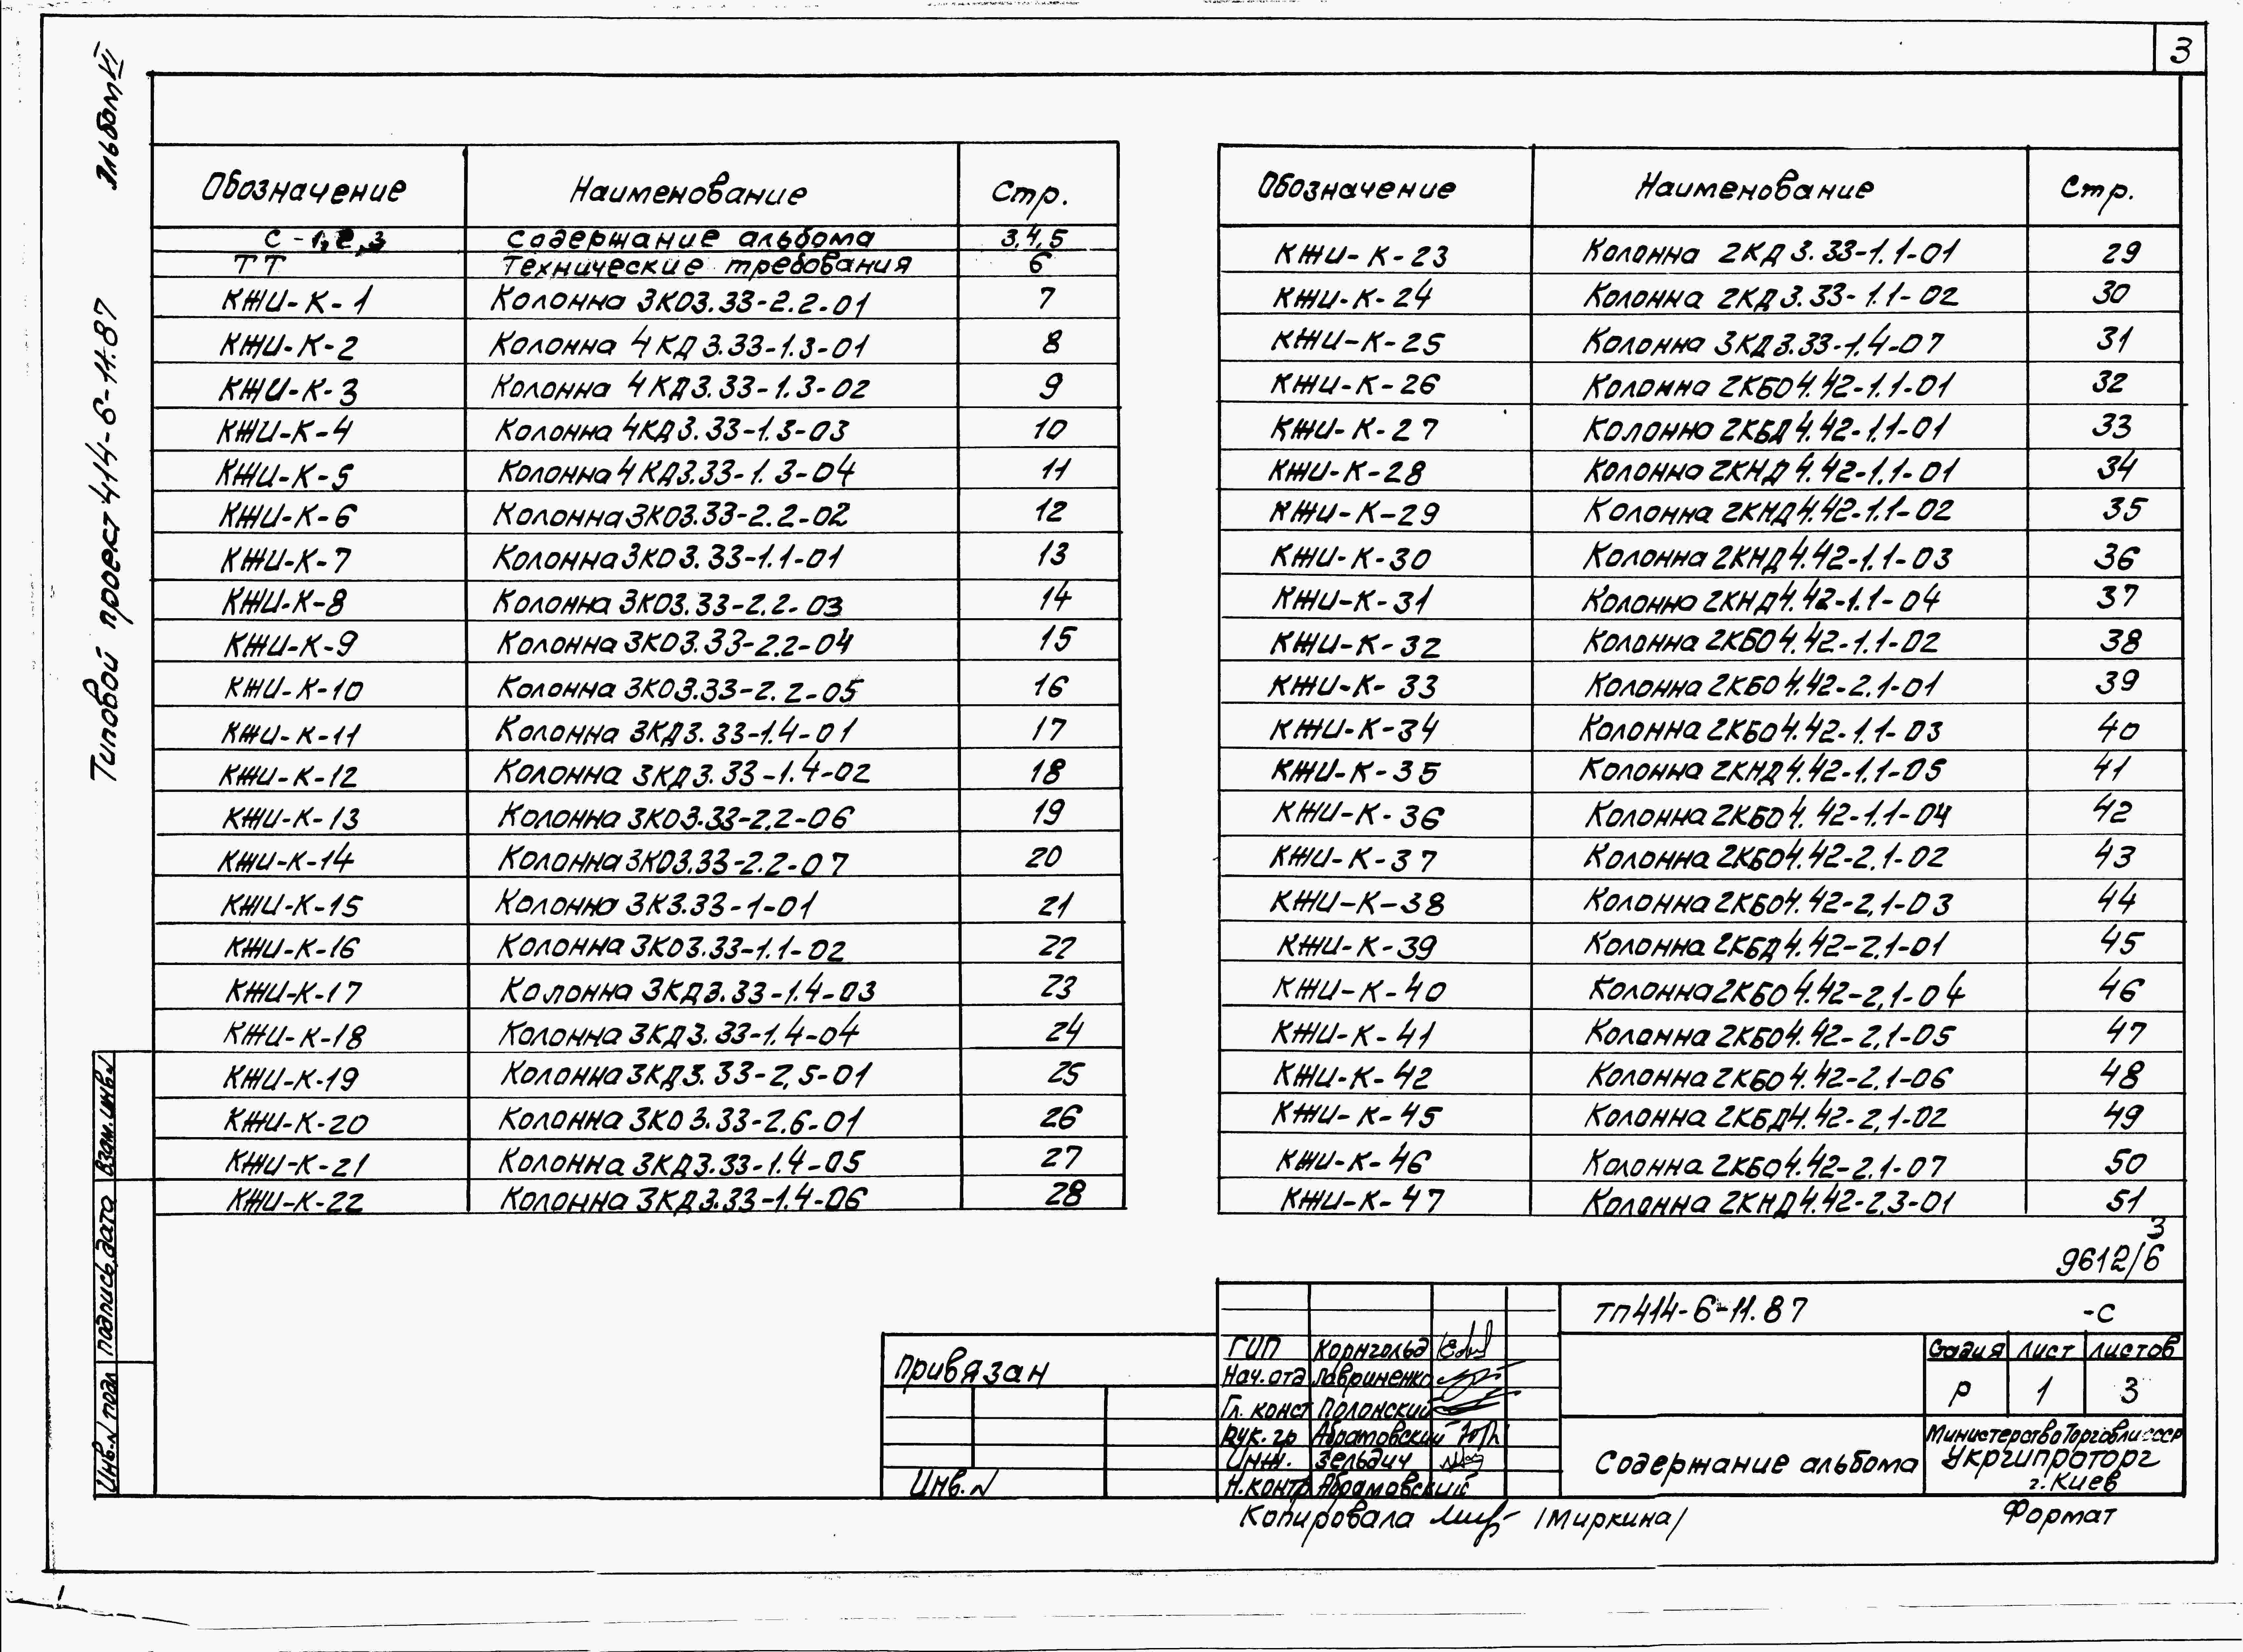 3
Альбом VI
Типовой проект 414-6-11.87
Обозначение Наименование Стр.
С-1,2,3 Содержание альбома 3,4,5
ТТ Технические требования 6
КЖИ-К-1 Колонна 3КО3.33-2.2-01 7
КЖИ-К-2 Колонна 4КД3.33-1.3-01 8
КЖИ-К-3 Колонна 4КД3.33-1.3-02 9
КЖИ-К-4 Колонна 4КД3.33-1.3-03 10
КЖИ-К-5 Колонна 4КД3.33-1.3-04 11
КЖИ-К-6 Колонна 3КО3.33-2.2-02 12
КЖИ-К-7 Колонна 3КО3.33-1.1-01 13
КЖИ-К-8 Колонна 3КО3.33-2.2-03 14
КЖИ-К-9 Колонна 3КО3.33-2.2-04 15
КЖИ-К-10 Колонна 3КО3.33-2.2-05 16
КЖИ-К-11 Колонна 3КД3.33-1.4-01 17
КЖИ-К-12 Колонна 3КД3.33-1.4-02 18
КЖИ-К-13 Колонна 3КО3.33-2.2-06 19
КЖИ-К-14 Колонна 3КО3.33-2.2-07 20
КЖИ-К-15 Колонна 3К3.33-1-01 21
КЖИ-К-16 Колонна 3КО3.33-1.1-02 22
КЖИ-К-17 Колонна 3КД3.33-1.4-03 23
КЖИ-К-18 Колонна 3КД3.33-1.4-04 24
КЖИ-К-19 Колонна 3КД3.33-2,5-01 25
КЖИ-К-20 Колонна 3КО3.33-2.6-01 26
КЖИ-К-21 Колонна 3КД3.33-1.4-05 27
КЖИ-К-22 Колонна 3КД3.33-1.4-06 28
Обозначение Наименование Стр.
КЖИ-К-23 Колонна 2КД3.33-1.1-01 29
КЖИ-К-24 Колонна 2КД3.33-1.1-02 30
КЖИ-К-25 Колонна 3КД3.33-1.4-07 31
КЖИ-К-26 Колонна 2КБО4.42-1.1-01 32
КЖИ-К-27 Колонна 2КБД4.42-1.1-01 33
КЖИ-К-28 Колонна 2КНД4.42-1.1-01 34
КЖИ-К-29 Колонна 2КНД4.42-1.1-02 35
КЖИ-К-30 Колонна 2КНД4.42-1.1-03 36
КЖИ-К-31 Колонна 2КНД4.42-1.1-04 37
КЖИ-К-32 Колонна 2КБО4.42-1.1-02 38
КЖИ-К-33 Колонна 2КБО4.42-2.1-01 39
КЖИ-К-34 Колонна 2КБО4.42-1.1-03 40
КЖИ-К-35 Колонна 2КНД4.42-1.1-05 41
КЖИ-К-36 Колонна 2КБО4.42-1.1-04 42
КЖИ-К-37 Колонна 2КБО4.42-2.1-02 43
КЖИ-К-38 Колонна 2КБО4.42-2,1-03 44
КЖИ-К-39 Колонна 2КБД4.42-2.1-01 45
КЖИ-К-40 Колонна 2КБО4.42-2,1-04 46
КЖИ-К-41 Колонна 2КБО4.42-2,1-05 47
КЖИ-К-42 Колонна 2КБО4.42-2,1-06 48
КЖИ-К-45 Колонна 2КБД4.42-2,1-02 49
КЖИ-К-46 Колонна 2КБО4.42-2.1-07 50
КЖИ-К-47 Колонна 2КНД4.42-2,3-01 51
3
9612/6
Взам. инв. N
Подпись, дата
Инв. N подл
Привязан
Инв. N
ТП414-6-11.87 -С
ГИП Корнгольд
Нач. отд Лавриненко
Гл. конст Полонский
Рук. гр Абрамовский
Инж. Зельдич
Н.контр Абрамовский
Стадия лист листов
Р 1 3
Содержание альбома
Министерство Торговли СССР
Укргипроторг
г. Киев
Копировала /Миркина/
Формат